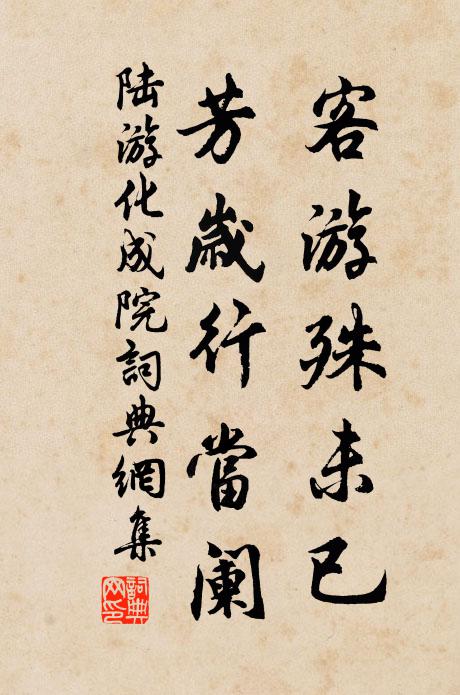 客游殊未已
芳歲行當阑
陆游化成院詞典網集
詞典网印